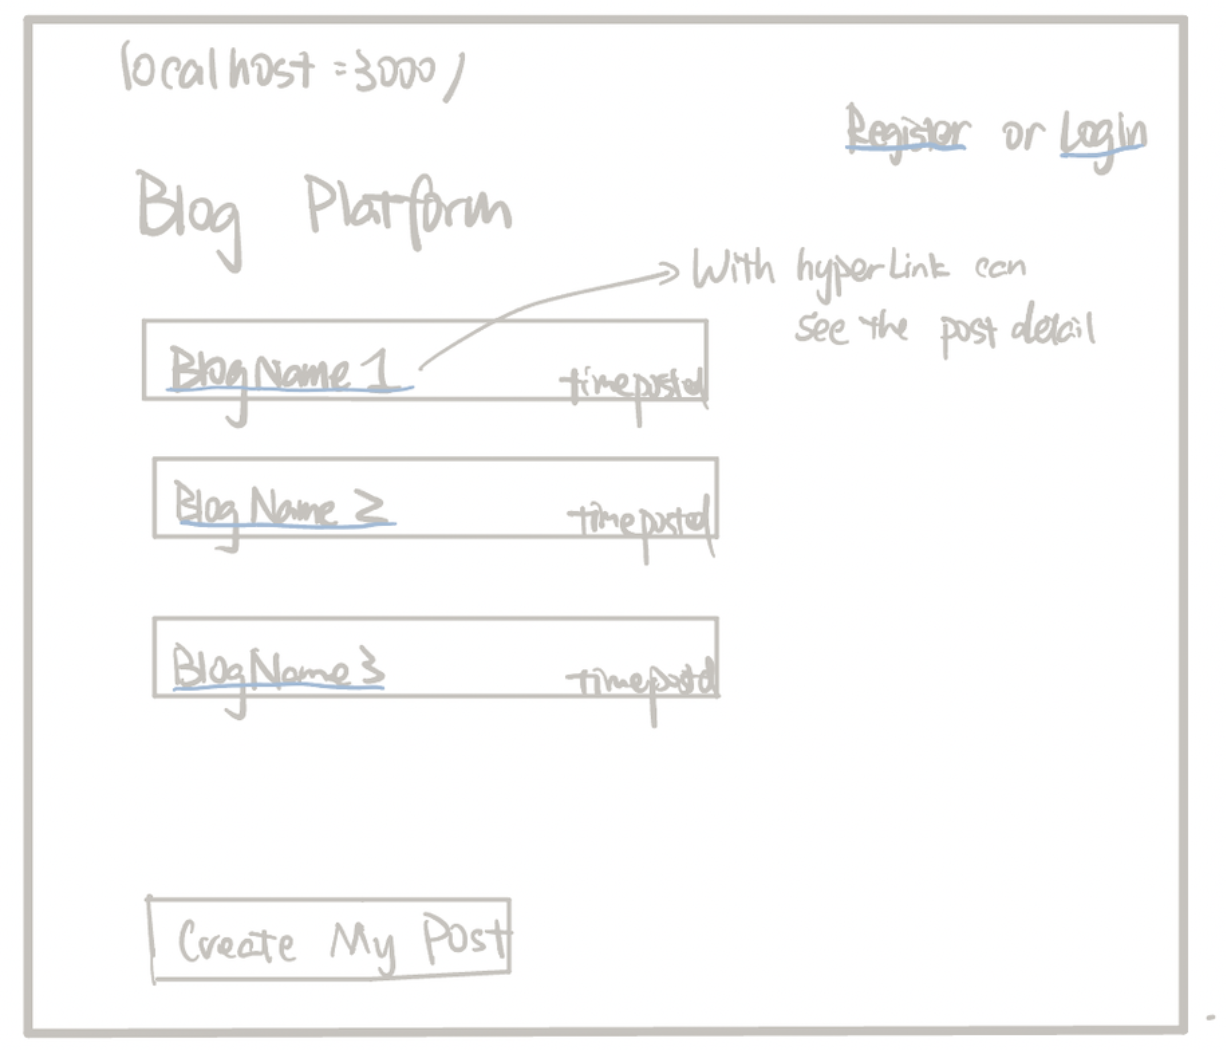 localhost:3000/
Register or Login
Blog Platform
With hyperLink can
see the post detail
Blog Name 1
timeposted
Blog Name 2
timeposted
Blog Name 3
timepostd
Create My Post